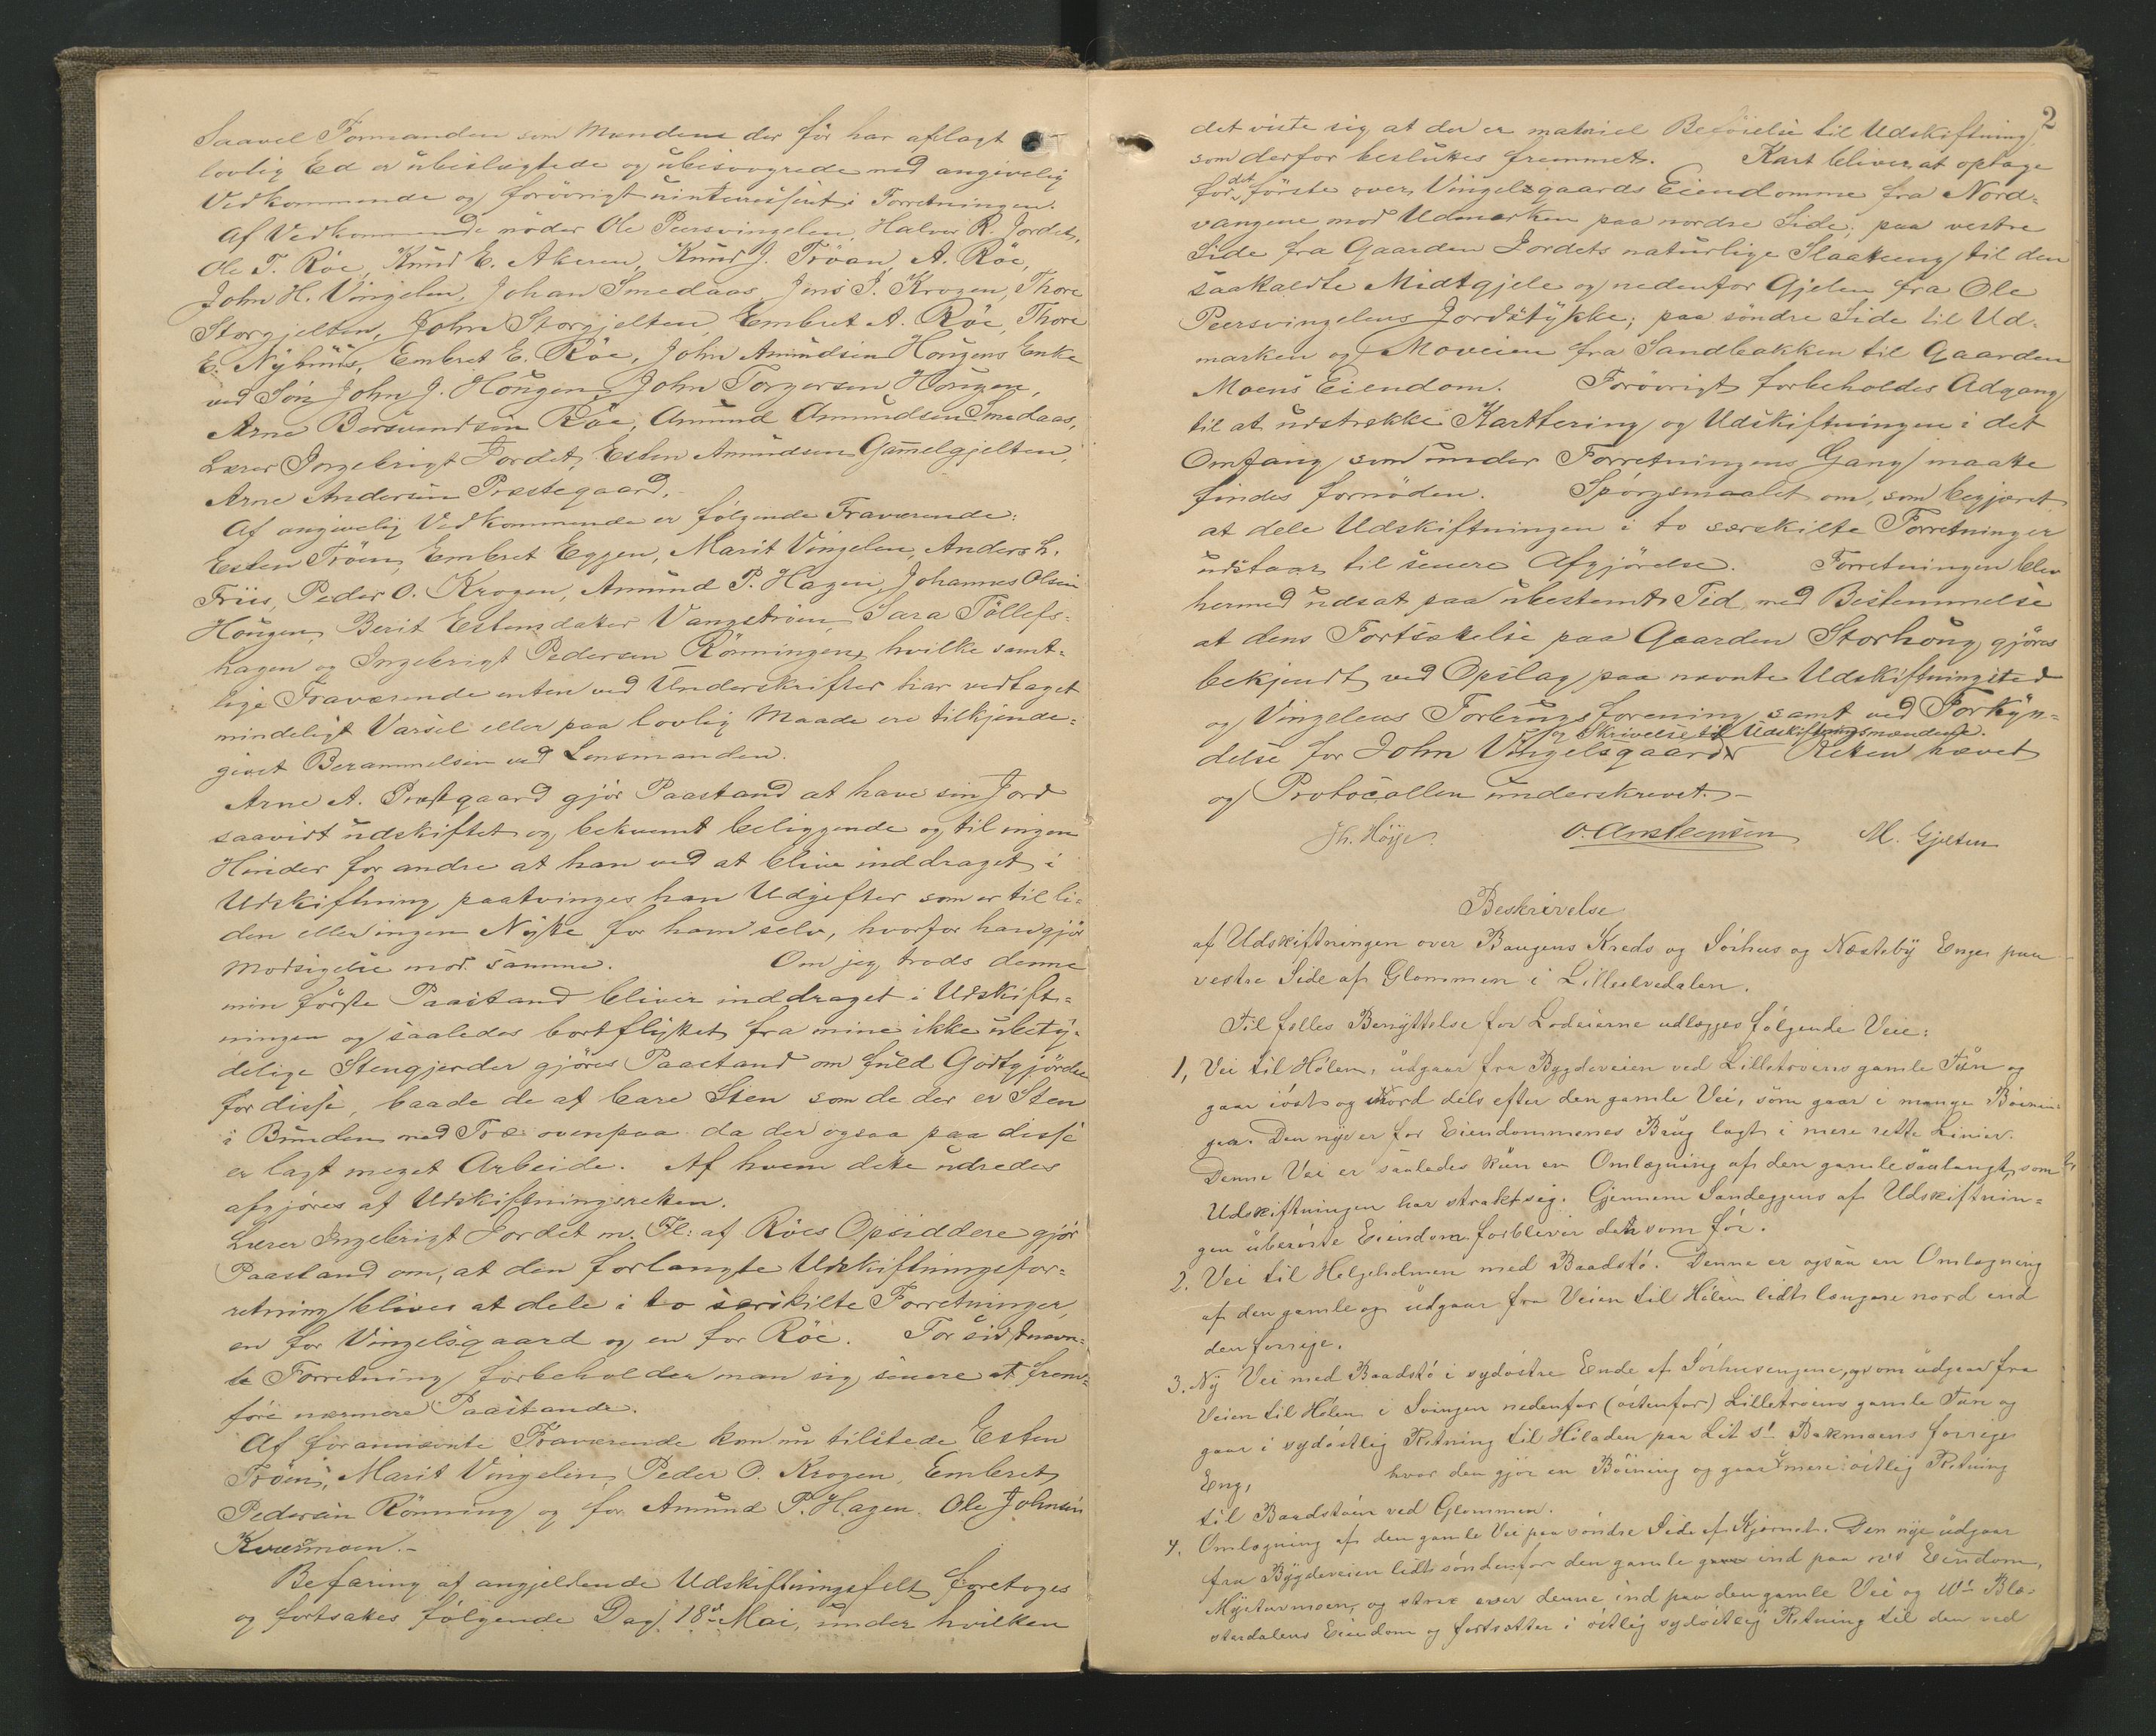 Saavel Formanden som Mændene der før har aflagt
lovlig Ed er ubeslægtede og ubesvogrede med angivelig
Vedkommende og forövrigt uinteresseret i Forretningen.
Af Vedkommende möder Ole Peersvingelen, Halvor R. Jordet,
Ole T. Röe, Knud E. Akeren, Knud J. Tröan, A. Röe,
John H. Vingelen, Johan Smedaas, Jens J. Krogen, Thore
Storgjelten, John Storgjelten, Embret A. Röe, Thore
E. Nyhuus, Embret E. Röe, John Amundsen Hougens Enke
ved Sön John J. Hougen, John Torgersen Hougen,
Arne Börsvendsen Röe, Amund Amundsen Smedaas,
Lærer Ingebrigt Jordet, Esten Amundsen Gamelgjelten,
Arne Andersen Præstegaard.
Af angivelig Vedkommende er følgende Fraværende:
Esten Tröen, Embret Eggen, Marit Vingelen, Anders L.
Friis, Peder O. Krogen, Amund P. Hagen, Johannes Olsen
Hougen, Berit Estensdatter Vangströen, Sara Töllefs-
hagen og Ingebrigt Pedersen Rönningen, hvilke samt-
lige Fraværende enten ved Underskrifter har vedtaget
mindeligt Varsel eller paa lovlig Maade ere tilkjende-
givet Berammelsen ved Lensmanden.
Arne A. Præstgaard gjör Paastand at have sin Jord
saavidt udskiftet og bekvemt beliggende og til ingen
Hinder for andre at han ved at blive inddraget i
Udskiftning paatvinges han Udgifter som er til li-
den eller ingen Nytte for ham selv, hvorfor han gjör
Modsigelse mod samme. Om jeg trods denne
min förste Paastand bliver inddraget i Udskift-
ningen og saaledes bortflyttet fra mine ikke ubety-
delige Stengjerder gjöres Paastand om fuld Godtgjörelse
for disse, baade de af bare Sten som de der er Sten
i Bunden med Træ ovenpaa da der ogsaa paa disse
er lagt meget Arbeide. Af hvem dette udredes
afgjöres af Udskiftningsretten.
Lærer Ingebrigt Jordet m. Fl: af Röes Opsiddere gjör
Paastand om, at den forlangte Udskiftningsfor-
retning bliver at dele i to særskilte Forretninger,
en for Vingelsgaard og en for Röe. For sidstnævn-
te Forretning forbeholder man sig senere at frem-
före nærmere Paastande.
Af forannævnte Fraværende kom nu tilstede Esten
Tröen, Marit Vingelen, Peder O. Krogen, Embret
Pedersen Rönning og for Amund P. Hagen Ole Johnsen
Kværnmoen.-
Befaring af angjeldende Udskiftningsfelt foretoges
og fortsattes følgende Dag 18de Mai, under hvilken
2
det viste sig at der er materiel Beföielse til Udskiftning
som derfor besluttes fremmet. Kart bliver at optage
for det förste over Vingelsgaards Eiendomme fra Nord-
vangene mod Udmarken paa nordre Side; paa vestre
Side fra Gaarden Jordets naturlige Slaateeng til den
saakaldte Midtgjele og nedenfor Gjelen fra Ole
Peersvingelens Jordstykke; paa söndre Side til Ud-
marken og Moveien fra Sandbakken til Gaarden
Moens Eiendom. Forövrigt forbeholdes Adgang
til at udstrække Karttering og Udskiftningen i det
Omfang som under Forretningens Gang maatte
findes fornöden. Spörgsmaalet om, som begjæret
at dele Udskiftningen i to særskilte Forretninger
udstaar til senere Afgjörelse. Forretningen blev
hermed udsat paa ubestemt Tid med Bestemmelse
at dens Fortsættelse paa Gaarden Storhoug gjöres
bekjendt ved Opslag paa nævnte Udskiftningsted
og Vingelens Forbrugsforening samt ved Forkyn-
og Skrivelse til Udskiftningsmændene.
delse for John Vingelsgaard. Retten hævet
og Protocollen underskrevet.-
Jh. Höye. O. Ansteensen M. Gjelten
Beskrivelse
af Udskiftningen over Baugens Kreds og Sörhus og Næsteby Enger paa
vestre Side af Glommen i Lilleelvedalen.
Til felles Benyttelse for Lodeierne udlægges følgende Veie:
1, Vei til Hölen, udgaar fra Bygdeveien ved Lilletröens gamle Tun og
gaar i öst og Nord dels efter den gamle Vei, som gaar i mange Böinin-
ger. Den nye er for Eiendommenes Brug lagt i mere rette Linier.
Denne Vei er saaledes kun en Omlægning af den gamle saalangt, som
Udskiftningen har strakt sig. Gjennem Sandeggens af Udskiftnin-
gen uberörte Eiendom forbliver den som för.
2. Vei til Helgeholmen med Baadstö. Denne er ogsaa en Omlægning
af den gamle og udgaar fra Veien til Hölen lidt længere nord end
den forrige.
3. Ny Vei med Baadstö i sydöstre Ende af Sörhusengene, som udgaar fra
Veien til Hölen i Svingen nedenfor (östenfor) Lilletröens gamle Tun og
gaar i sydöstlig Retning til Höladen paa Lit s1 Bakmoens forrige
Eng, hvor den gjör en Böining og gaar mere östlig Retning
til Baadstöen ved Glommen.
4. Omlægning af den gamle Vei paa söndre Side af Kjernet. Den nye udgaar
fra Bygdeveien lidt söndenfor den gamle ind paa Eiendom,
og over denne ind paa den gamle Vei og
Eiendom og fortsætter i östlig sydöstlig Retning til den ved